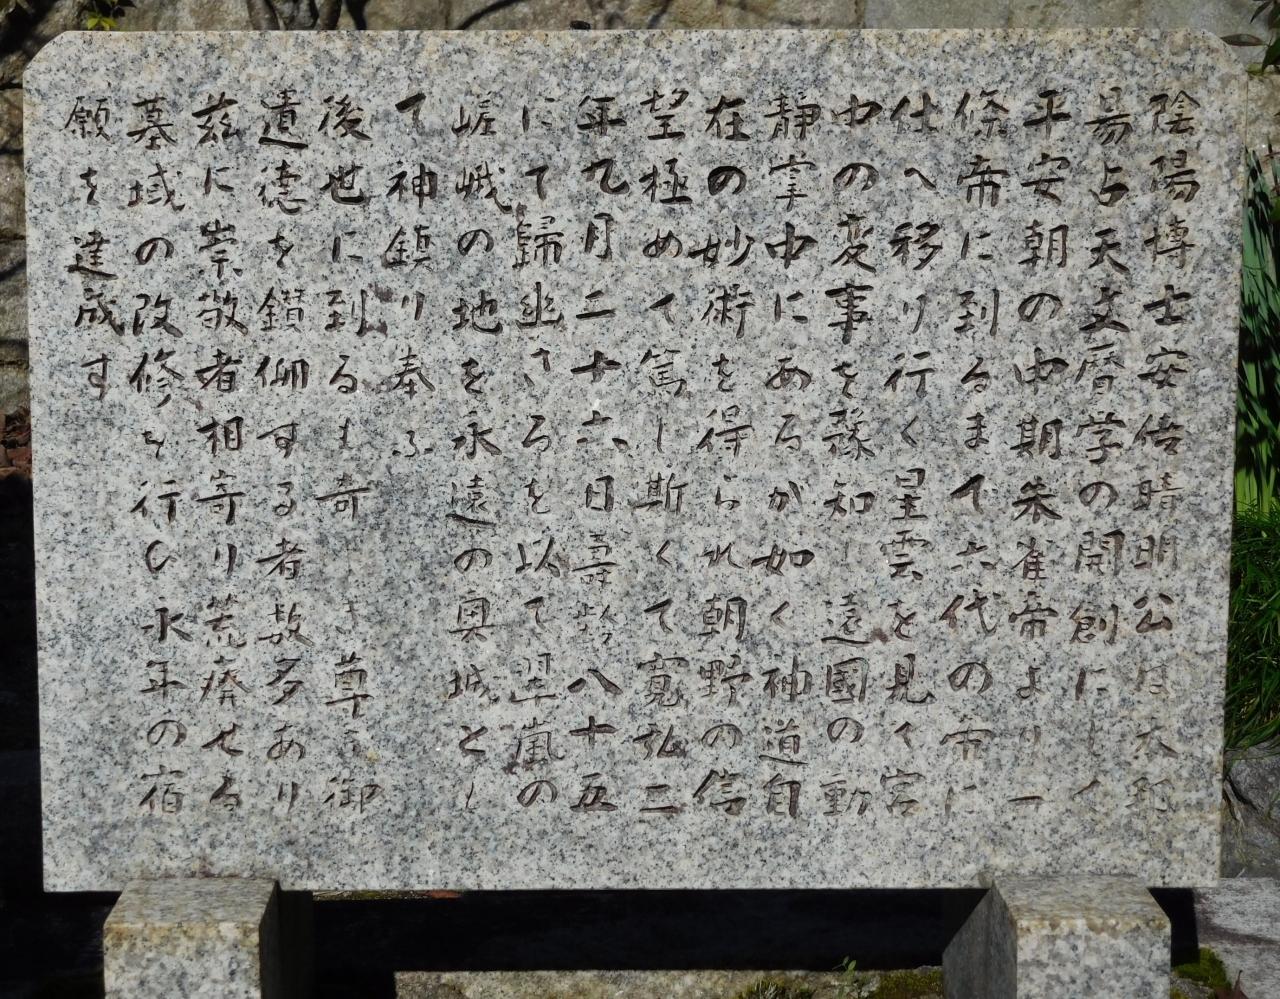 陰陽博士安倍晴明公は大和
易占天文暦学の開創にして
平安朝の中期朱雀帝より一
條帝に到るまて六代の帝に
仕へ移り行く星雲を見く宮
中の変事を豫知し遠國の動
静掌中にあるが如く神道自
在の妙術を得られ朝野の信
望極めて篤し斯くて寛弘二
年九月二十六日壽齢八十五
にて歸幽さるを以て翠嵐の
嵯峨の地を永遠の奥城とし
て神鎮り奉ふ
後世に到るも奇しき尊き御
遺徳を鑚仰する者数多あり
茲に崇敬者相寄り荒廃せる
墓域の改修を行ひ永年の宿
願を達成す